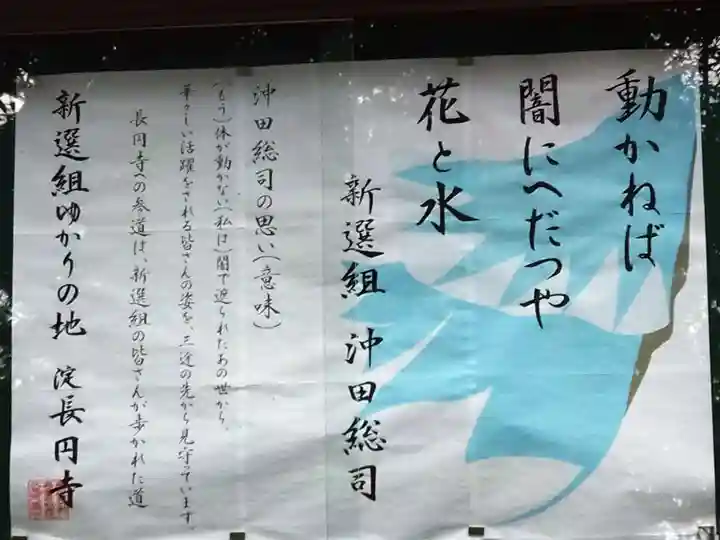 動かねば
闇にへだつや
花と水
新選組 沖田総司
沖田総司の思い(意味)
(もう)体が動かない(私は)闇で遮られたあの世から、
華々しい活躍をされる皆さんの姿を、三途の先から見守っています。
長円寺への参道は、新選組の皆さんが歩かれた道
新選組ゆかりの地 淀長円寺